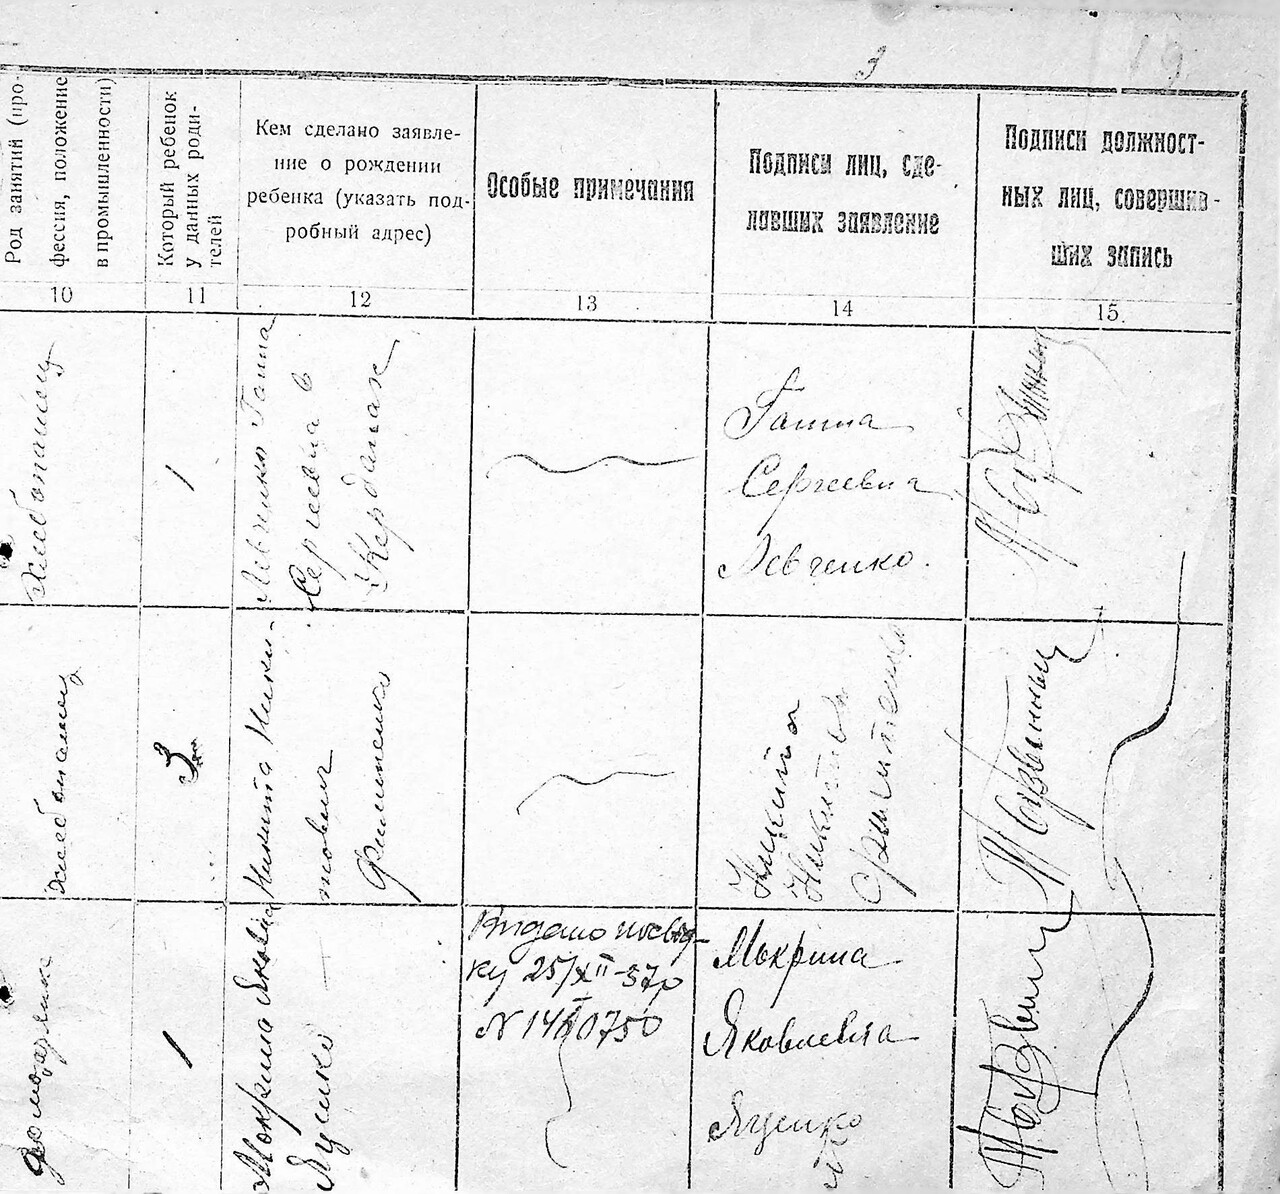 3
19
Род занятий (про-
фессия, положение
в промышленности)
Который ребенок
у данных роди-
телей
Кем сделано заявле-
ние о рождении
ребенка (указать под-
робный адрес)
Особые примечания
Подписи лиц, сде-
лавших заявление
Подписи должност-
ных лиц, совершив-
ших запись
10
11
12
13
14
15
Хлебопашец
1
Левченко Ганна
Сергеевна
Ганна
Сергеевна
Левченко
Хлебопашец
3
Никита Ники-
тович
Никита
1
Мокрина Яковл
Яценко
Видано посвід-
ку 25/XII-37р
Мокрина
Яковлевна
Яценко